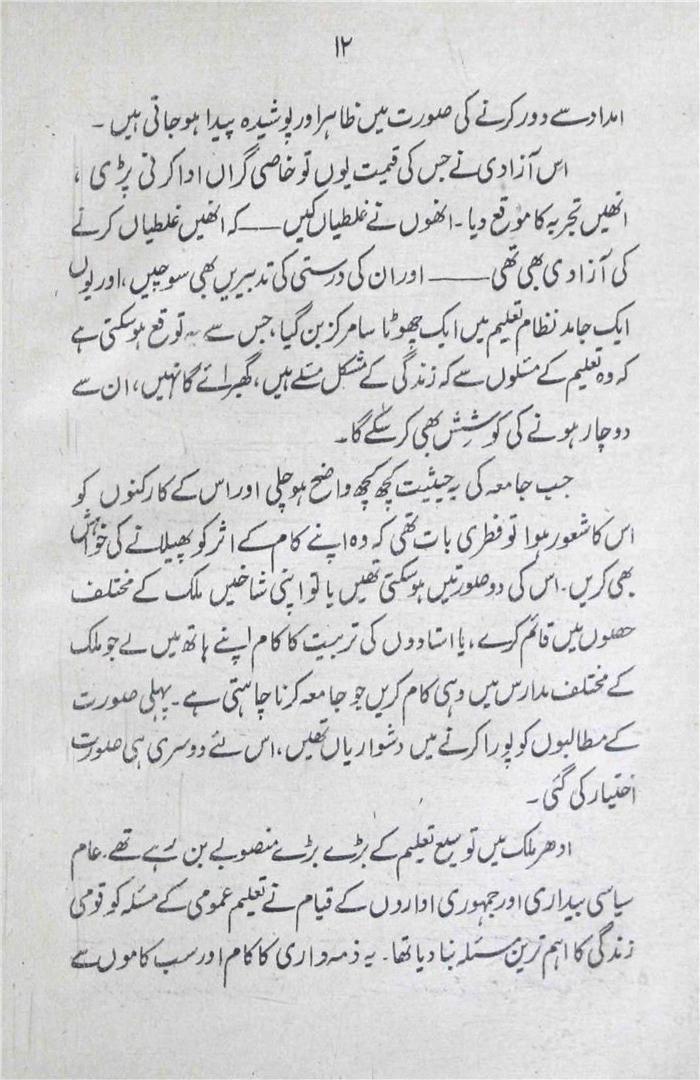 ۱۲
امداد سے دور کرنے کی صورت میں ظاہر اور پوشیدہ پیدا ہو جاتی ہیں ۔
اس آزادی نے جس کی قیمت یوں تو خاصی گراں ادا کرنی پڑی ،
انھیں تجربہ کا موقع دیا ۔ انھوں نے غلطیاں کیں —— کہ انھیں غلطیاں کرنے
کی آزادی بھی تھی —— اور ان کی درستی کی تدبیریں بھی سوچیں ، اور یوں
ایک جامد نظام تعلیم میں ایک چھوٹا سا مرکز بن گیا ، جس سے یہ توقع ہو سکتی ہے
کہ وہ تعلیم کے مسئلوں سے کہ زندگی کے مشکل مسئلے ہیں ، گھبرائے گا نہیں ، ان سے
دوچار ہونے کی کوشش بھی کر سکے گا ۔
جب جامعہ کی یہ حیثیت کچھ کچھ واضح ہو چلی اور اس کے کارکنوں کو
اس کا شعور ہوا تو فطری بات تھی کہ وہ اپنے کام کے اثر کو پھیلانے کی خواہش
بھی کریں ۔ اس کی دو صورتیں ہو سکتی تھیں یا تو اپنی شاخیں ملک کے مختلف
حصوں میں قائم کرے ، یا استادوں کی تربیت کا کام اپنے ہاتھ میں لے جو ملک
کے مختلف مدارس میں وہی کام کریں جو جامعہ کرنا چاہتی ہے ۔ پہلی صورت
کے مطالبوں کو پورا کرنے میں دشواریاں تھیں ، اس لئے دوسری ہی صورت
اختیار کی گئی ۔
ادھر ملک میں توسیع تعلیم کے بڑے بڑے منصوبے بن رہے تھے ۔ عام
سیاسی بیداری اور جمہوری اداروں کے قیام نے تعلیم عمومی کے مسئلہ کو قومی
زندگی کا اہم ترین مسئلہ بنا دیا تھا ۔ یہ ذمہ داری کا کام اور سب کاموں سے